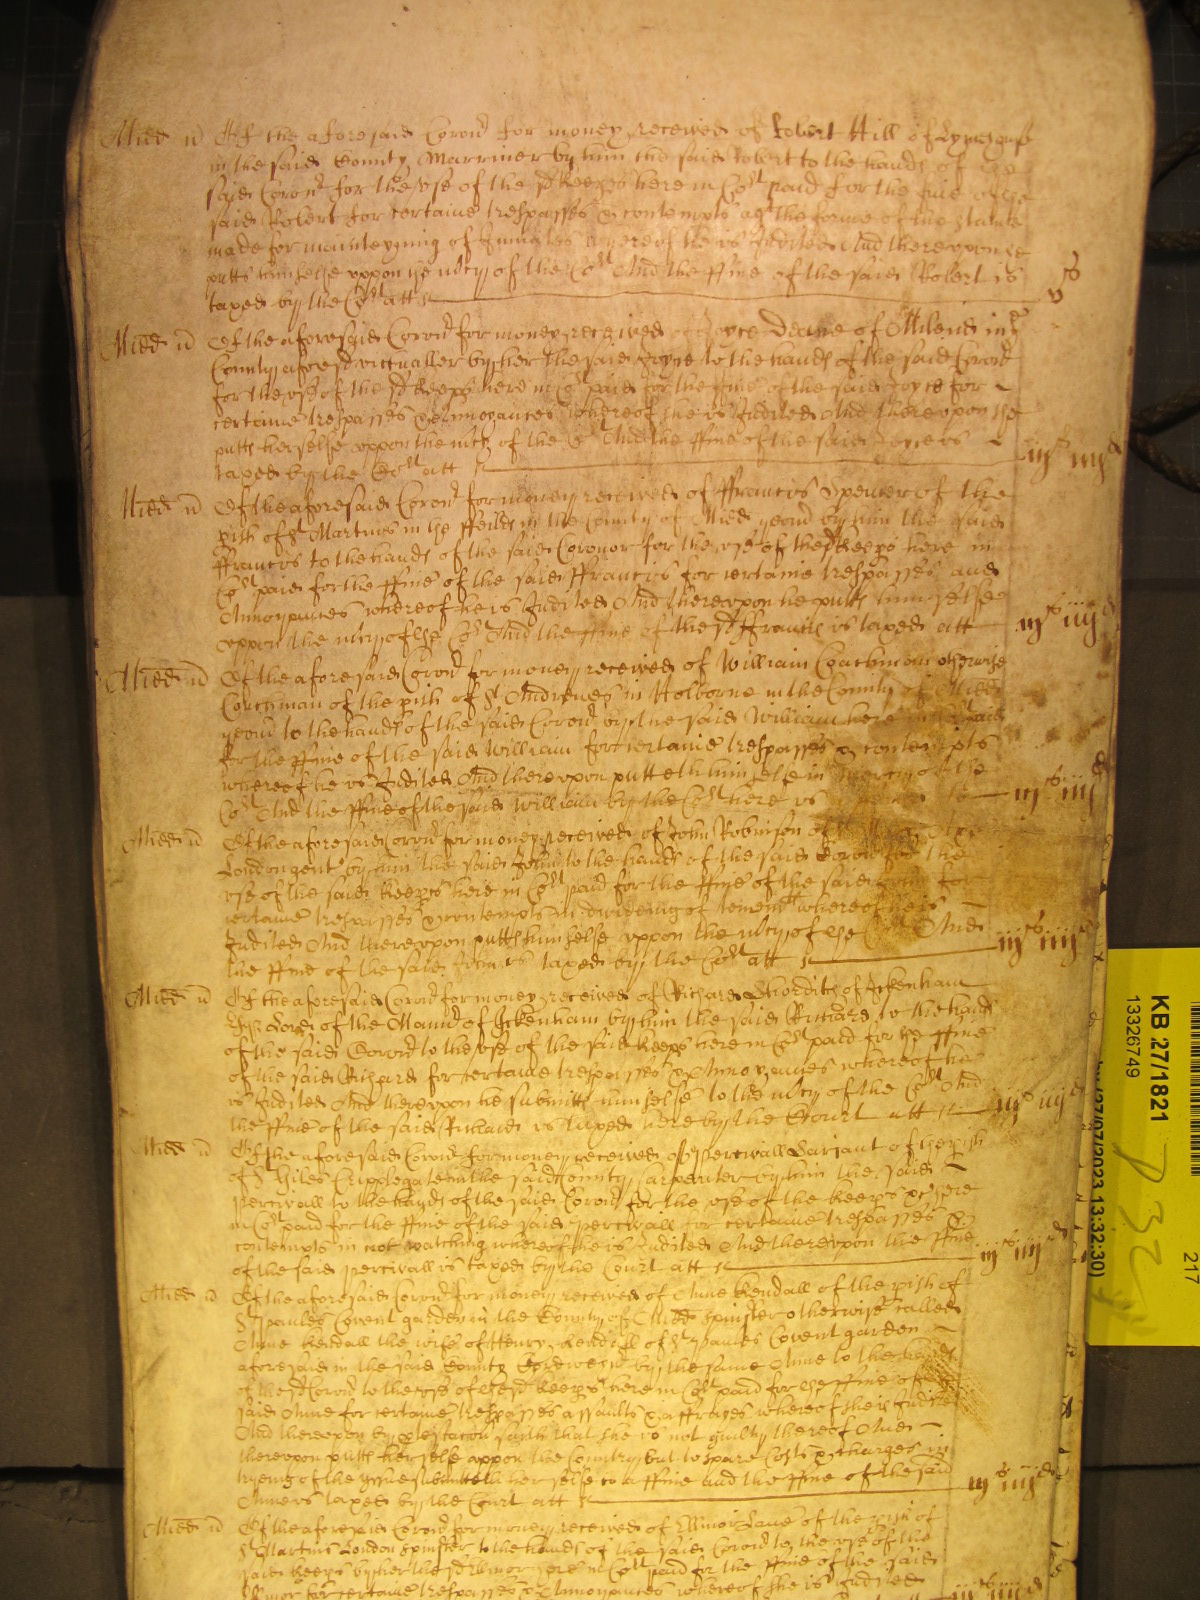 Midd ss Of the aforesaid Coron' for money received of Robert Hill of
in the said County Marriner by him the said Robert to the hands of the
said Coron' for the use of the sd keeps here in Cort paid for the fine of the
said Robert for certaine trespasses & contempts agt the forme of the statute
made for mainteyning of Inmates whereof he is Indicted And thereupon he
putts himselfe uppon the mcy of the Cort And the ffine of the said Robert is
taxed by the Cort att vs
Midd ss Of the aforesaid Coron' for money received of Joyce Deane of Milend in ye
County aforesd victualler by her the said Joyce to the hands of the said Coron'
for the use of the sd keeps here in Cort paid for the ffine of the said Joyce for
certaine trespasses & annoyances whereof she is Indicted And thereupon she
putts herselfe uppon the mcy of the Cort And the ffine of the said Joyce is
taxed by the Cort att iijs iiijd
Midd ss Of the aforesaid Coron' for money received of ffrancis Spencer of the
pish of St Martins in the ffeilds in the County of Midd yeom' by him the said
ffrancis to the hands of the said Coronor for the use of the sd keeps here in
Cort paid for the ffine of the said ffrancis for certaine trespasses and
Annoyances whereof he is Indicted And thereupon he putts himselfe
uppon the mcy of the Cort And the ffine of the sd ffrancis is taxed att iijs iiijd
Midd ss Of the aforesaid Coron' for money received of William Coachman otherwise
Cotchman of the pish of St Andrewes in Holborne in the County of Midd
yeom' to the hands of the said Coron' by the said William here in Cort paid
for the ffine of the said William for certaine trespasses & contempts
whereof he is Indicted And thereupon putteth himselfe in mercy of the
Cort And the ffine of the said William by the Cort here is iijs iiijd
Midd ss Of the aforesaid Coron' for money received of John Robinson of
London gent' by him the said John to the hands of the said Coron' for the
use of the said keeps here in Cort paid for the ffine of the said John for
certaine trespasses & contempts in divideing of tenemts whereof he is
Indicted And thereupon putts himselfe uppon the mcy of the Cort And
the ffine of the said John is taxed by the Cort att iijs iiijd
Midd ss Of the aforesaid Coron' for money received of Richard Shorditch of Ickenham
Esqr Lord of the Mannor of Ickenham by him the said Richard to the hands
of the said Coron' to the use of the said keeps here in Cort paid for the ffine
of the said Richard for certaine trespasses & Annoyances whereof he
is Indicted And thereupon he submitts himselfe to the mcy of the Cort And
the ffine of the said Richard is taxed here by the Court att iijs iiijd
Midd ss Of the aforesaid Coron' for money received of Percivall Sarjant of the pish
of St Giles Cripplegate in the said County Carpenter by him the said
Percivall to the hands of the said Coron' for the use of the keeps &c here
in Cort paid for the ffine of the said Percivall for certaine trespasses &
contempts in not watching whereof he is Indicted And thereupon the ffine
of the said Percivall is taxed by the Court att iijs iiijd
Midd ss Of the aforesaid Coron' for money received of Anne Kendall of the pish of
St Paules Covent garden in the County of Midd Spinster otherwise called
Anne Kendall the wife of Henry Kendall of St Paules Covent garden
aforesaid in the said County by the same Anne to the hands
of the sd Coron' to the use of the sd keeps here in Cort paid for the ffine of the
said Anne for certaine trespasses assaults & affrayes whereof she is Indicted
And thereupon by ptestacon saith that she is not guilty thereof And
thereupon putts herselfe uppon the Countrey but to spare Costs & charges in
tryeing of the yssue submitteth herselfe to a ffine and the ffine of the said
Anne is taxed by the Court att iijs iiijd
Midd ss Of the aforesaid Coron' for money received of Ellinor Lane of the pish of
St Martins London Spinster to the hands of the said Coron' to the use of the
said keeps by her the sd Ellinor here in Cort paid for the ffine of the said
Ellinor for certaine trespasses & Annoyances whereof she is Indicted iijs iiijd
KB 27/1821
13326749
217
27/07/2023 13:32:30)